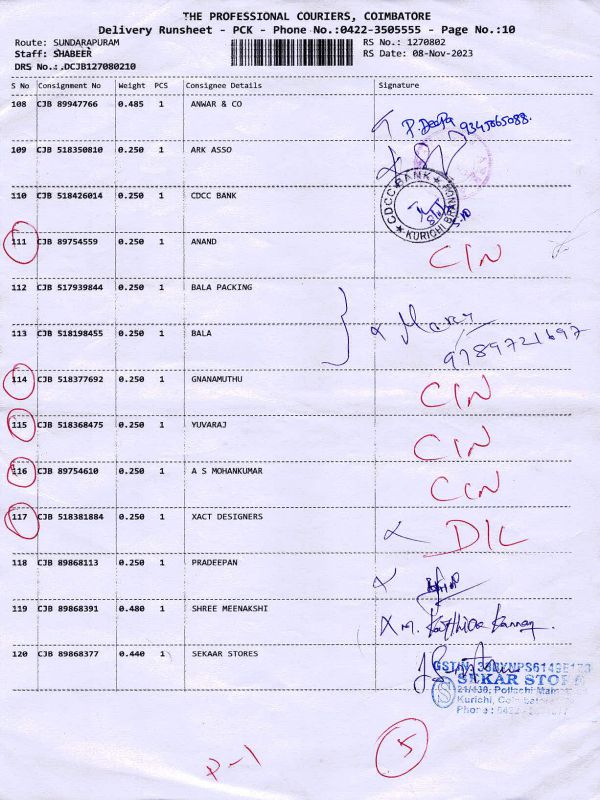 THE PROFESSIONAL COURIERS, COIMBATORE
Delivery Runsheet - PCK - Phone No.:0422-3505555 - Page No.:10
Route: SUNDARAPURAM RS No.: 1270802
Staff: SHABEER RS Date: 08-Nov-2023
DRS No.: DCJB127080210
S No Consignment No Weight PCS Consignee Details Signature
108 CJB 89947766 0.485 1 ANWAR & CO
P. Deepa 9345865088.
109 CJB 518350810 0.250 1 ARK ASSO
110 CJB 518426014 0.250 1 CDCC BANK
CDCC BANK KURICHI BRANCH
111 CJB 89754559 0.250 1 ANAND CIN
112 CJB 517939844 0.250 1 BALA PACKING
113 CJB 518198455 0.250 1 BALA
9789721697
114 CJB 518377692 0.250 1 GNANAMUTHU CIN
115 CJB 518368475 0.250 1 YUVARAJ CIN
116 CJB 89754610 0.250 1 A S MOHANKUMAR CIN
117 CJB 518381884 0.250 1 XACT DESIGNERS DIL
118 CJB 89868113 0.250 1 PRADEEPAN
119 CJB 89868391 0.480 1 SHREE MEENAKSHI M.
120 CJB 89868377 0.440 1 SEKAAR STORES
SEKAR STORES
21/430, Pollachi Main
Kurichi,
Phone : 0422
5
P-1